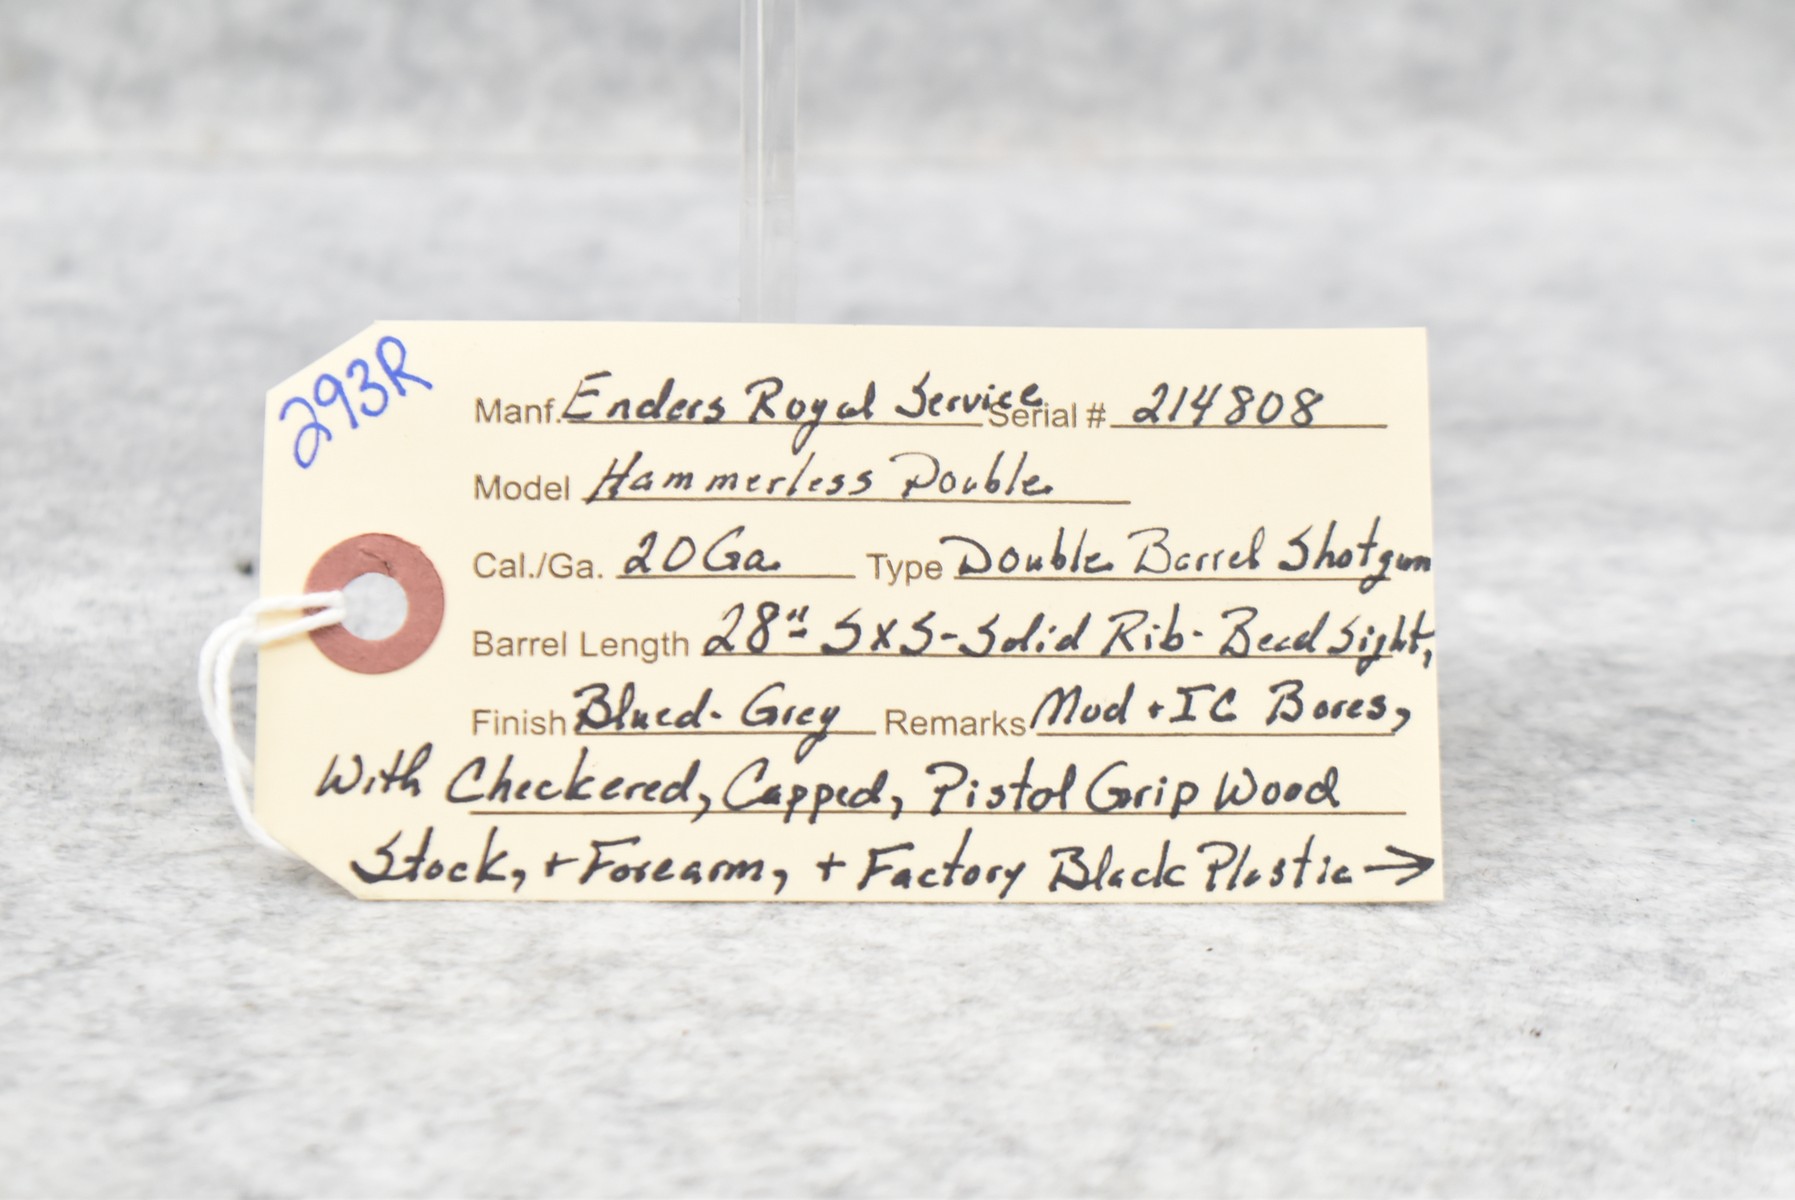 293R
Manf. Enders Royal Service Serial # 214808
Model Hammerless Double
Cal./Ga. 20 Ga. Type Double Barrel Shotgun
Barrel Length 28"- SXS-Solid Rib-Bead Sight,
Finish Blued-Grey Remarks Mod + IC Bores,
With Checkered, Capped, Pistol Grip Wood
Stock, + Forearm, + Factory Black Plastic →